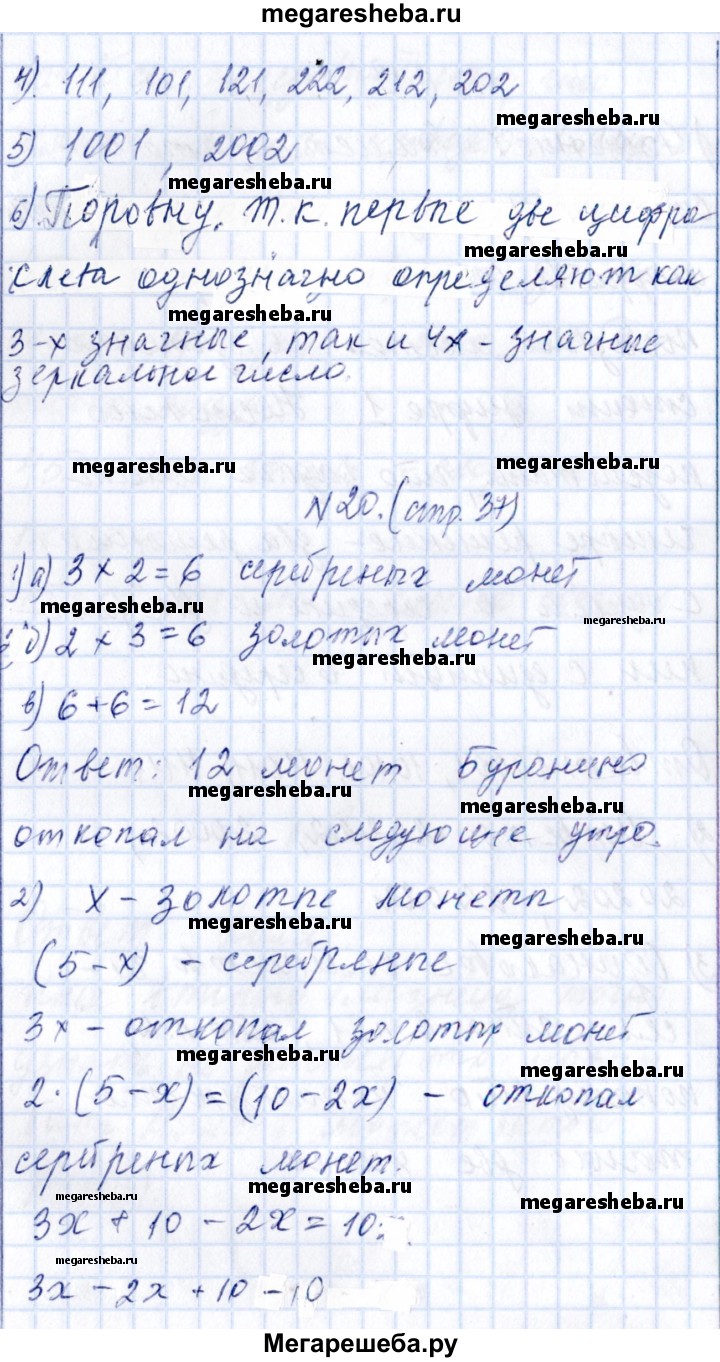 megaresheba.ru
4). 111, 101, 121, 222, 212, 202
megaresheba.ru
5) 1001, 2002
megaresheba.ru
6). Поровну, т.к. первые две цифра
megaresheba.ru
слева однозначно определяют как
megaresheba.ru
3-х значные, так и 4х-значные
зеркальное число.
megaresheba.ru
megaresheba.ru
N 20. (стр. 37)
1) а) 3 × 2 = 6 серебреных монет
megaresheba.ru
megaresheba.ru
б) 2 × 3 = 6 золотых монет
megaresheba.ru
в) 6+6 = 12
Ответ: 12 монет Буратино
megaresheba.ru
megaresheba.ru
откопал на следующие утро.
2) х - золотые монеты
megaresheba.ru
megaresheba.ru
(5-х) - серебряные
3х - откопал золотых монет
megaresheba.ru
megaresheba.ru
2·(5-х) = (10-2х) - откопал
серебреных монет.
megaresheba.ru
megaresheba.ru
megaresheba.ru
3х + 10 - 2х = 10
megaresheba.ru
3х - 2х + 10 - 10
Мегарешеба.ру